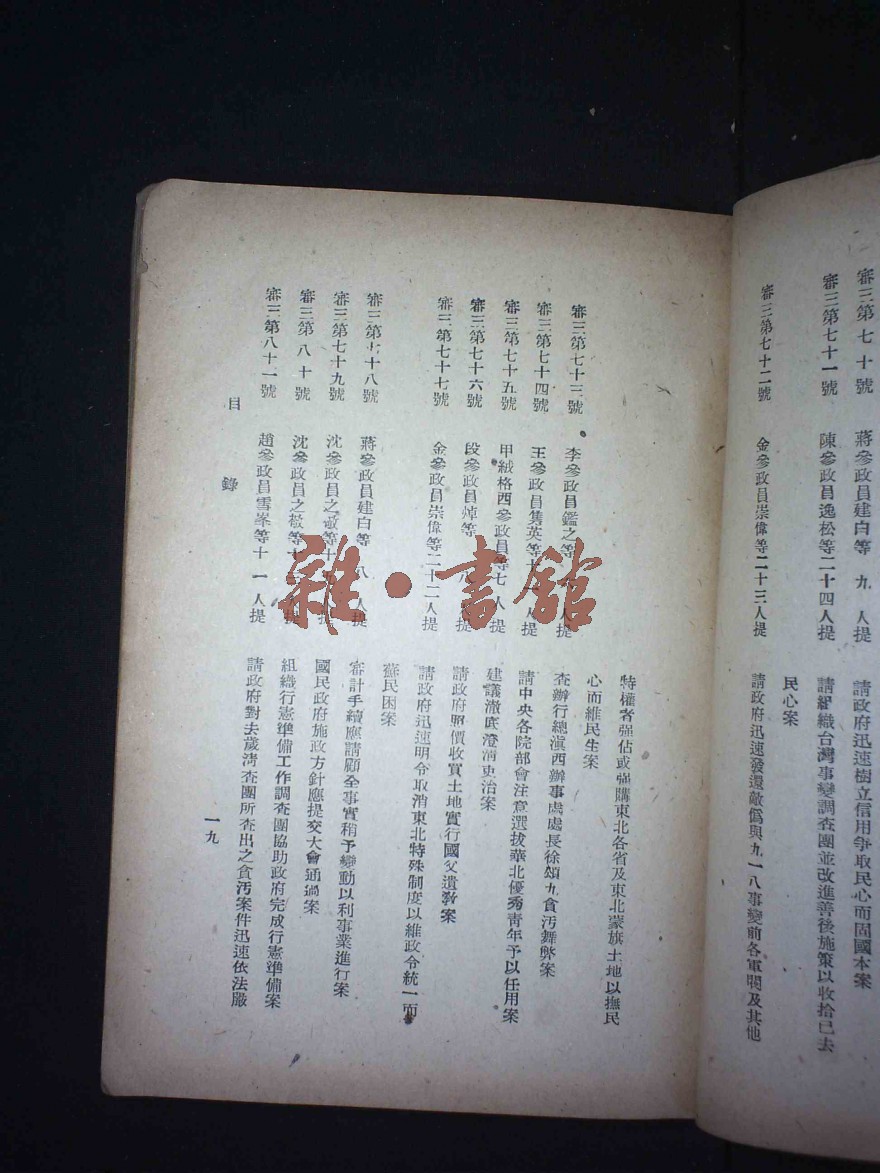 審三第七十號 蔣參政員建白等九人提 請政府迅速樹立信用爭取民心而固國本案
審三第七十一號 陳參政員逸松等二十四人提 請組織台灣事變調查團並改進善後施策以收拾已去
民心案
審三第七十二號 金參政員崇偉等二十三人提 請政府迅速發還敵僞與九一八事變前各軍閥及其他
特權者强佔或强購東北各省及東北蒙旗土地以撫民
心而維民生案
審三第七十三號 李參政員鑑之等 人提 查辦行總滇西辦事處處長徐頌九貪汚舞弊案
審三第七十四號 王參政員雋英等 人提 請中央各院部會注意選拔華北優秀靑年予以任用案
審三第七十五號 甲絨格西參政員等七人提 建議澈底澄淸吏治案
審三第七十六號 段參政員焯等八 提 請政府照價收買土地實行國父遺敎案
審三第七十七號 金參政員崇偉等二十二人提 請政府迅速明令取消東北特殊制度以維政令統一而
蘇民困案
審三第七十八號 蔣參政員建白等八人提 審計手續應請顧全事實稍予變動以利事業進行案
審三第七十九號 沈參政員之敬等十 提 國民政府施政方針應提交大會通過案
審三第八十號 沈參政員之敬等十 提 組織行憲準備工作調查團協助政府完成行憲準備案
審三第八十一號 趙參政員雪峯等十一人提 請政府對去歲淸查團所查出之貪汚案件迅速依法嚴
目錄
一九
雜·書館